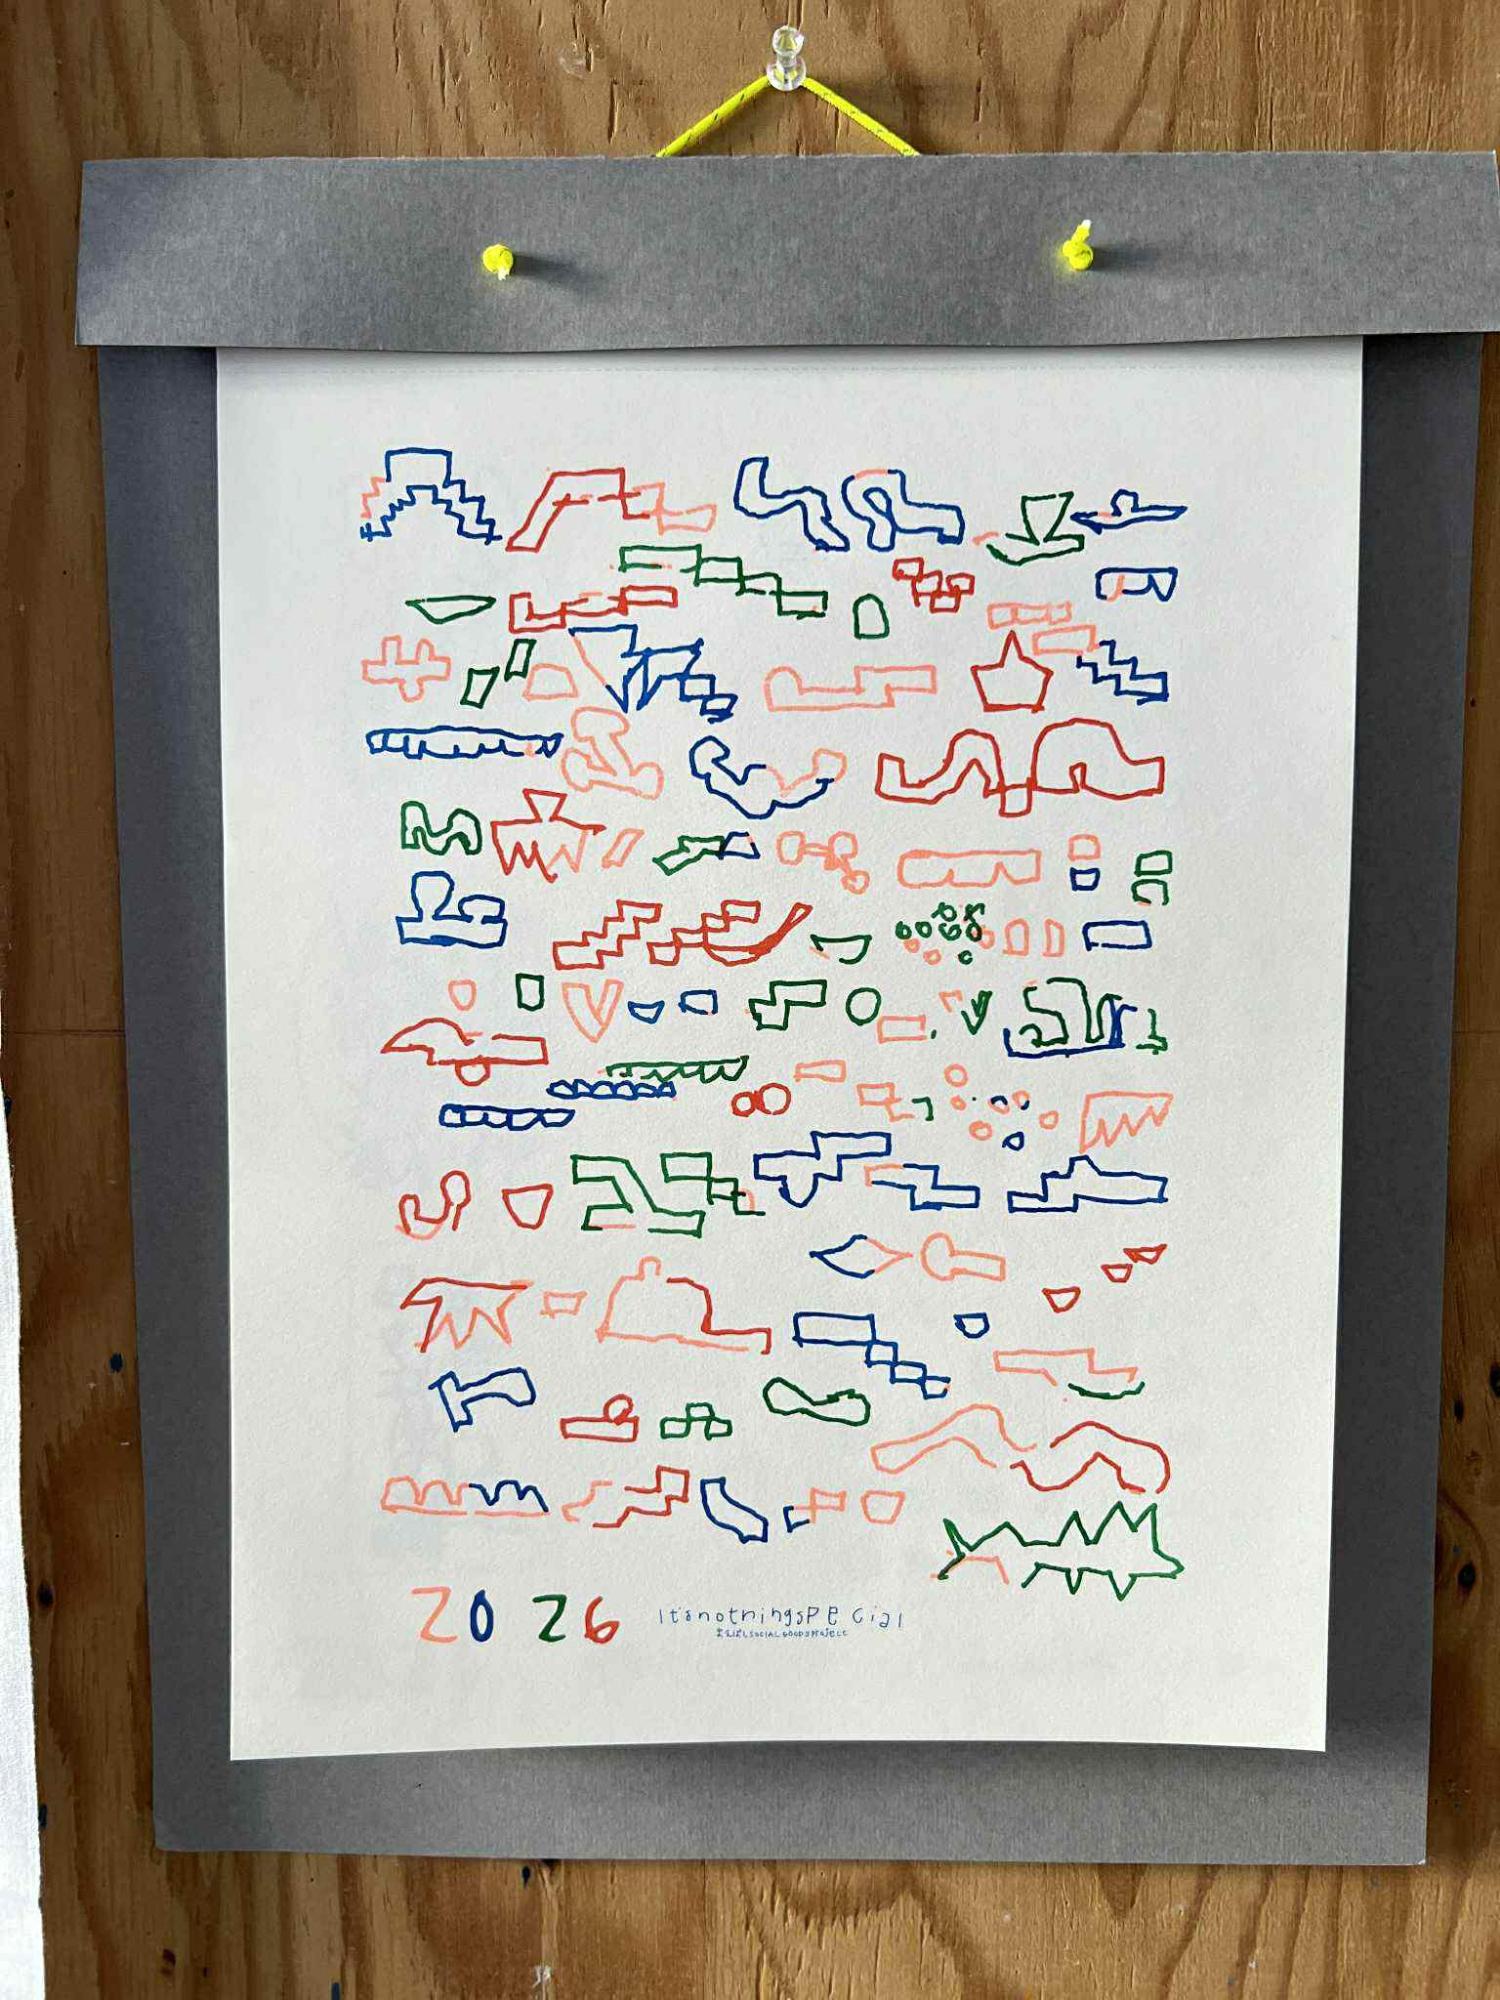 2026
It's nothingsPECial
SOCIAL GOODS PROJECT